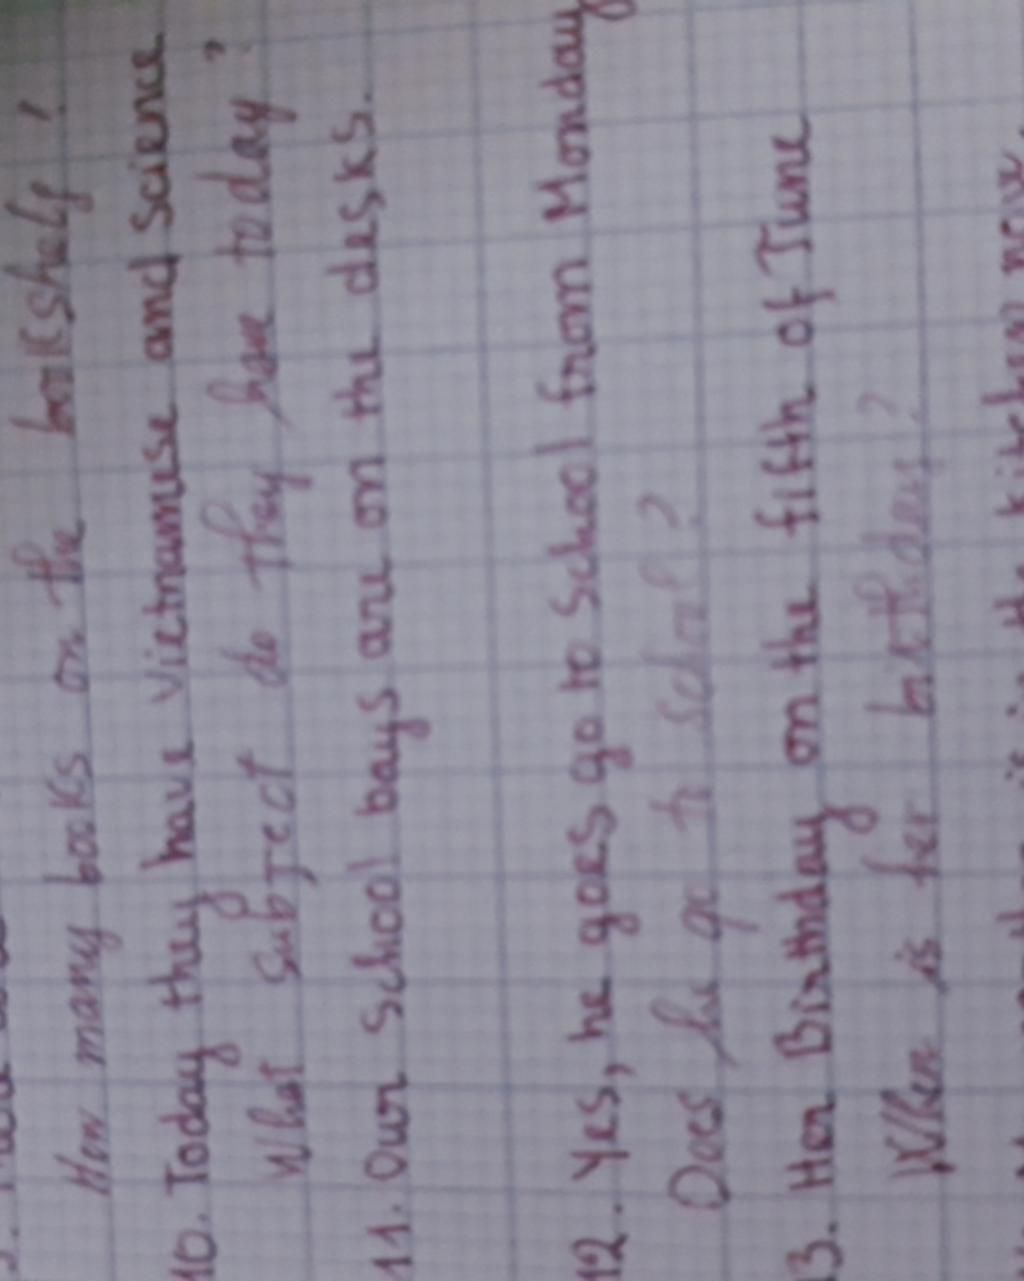 How many books on the bookshelf?
10. Today they have Vietnamese and Science
What subject do they have today?
11. Our School bags are on the desks.
12. Yes, he goes go to School from Monday
Does he go to school?
13. Her Birthday on the fifth of June
When is her birthday?
is in the kitchen now.